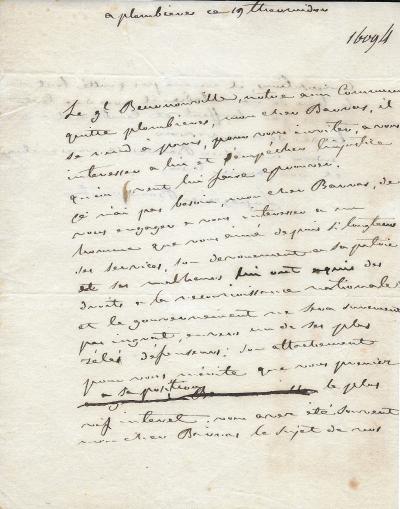 a plombieres ce 19 thermidor
16094
Le gl Beurnonville, notre ami Commun
quitte plombieres, mon cher Barras, il
se rend a paris, pour vous inviter, a vous
interesser a lui et d'empêcher l'injustice
qu'on veut lui faire eprouver.
je n'ai pas besoin, mon cher Barras, de
vous engager a vous interesser a un
homme que vous aimé depuis si longtems
ses services, son devouement a sa patrie
et ses malheurs lui ont aquis des
droits a la reconnaissance nationale
et le gouvernement ne sera surement
pas ingrat, envers un de ses plus
zélés defenseurs: son attachement
pour vous mérite que vous preniez
a sa position le plus
vif interet. vous avez été souvent
mon cher Barras le sujet de nos